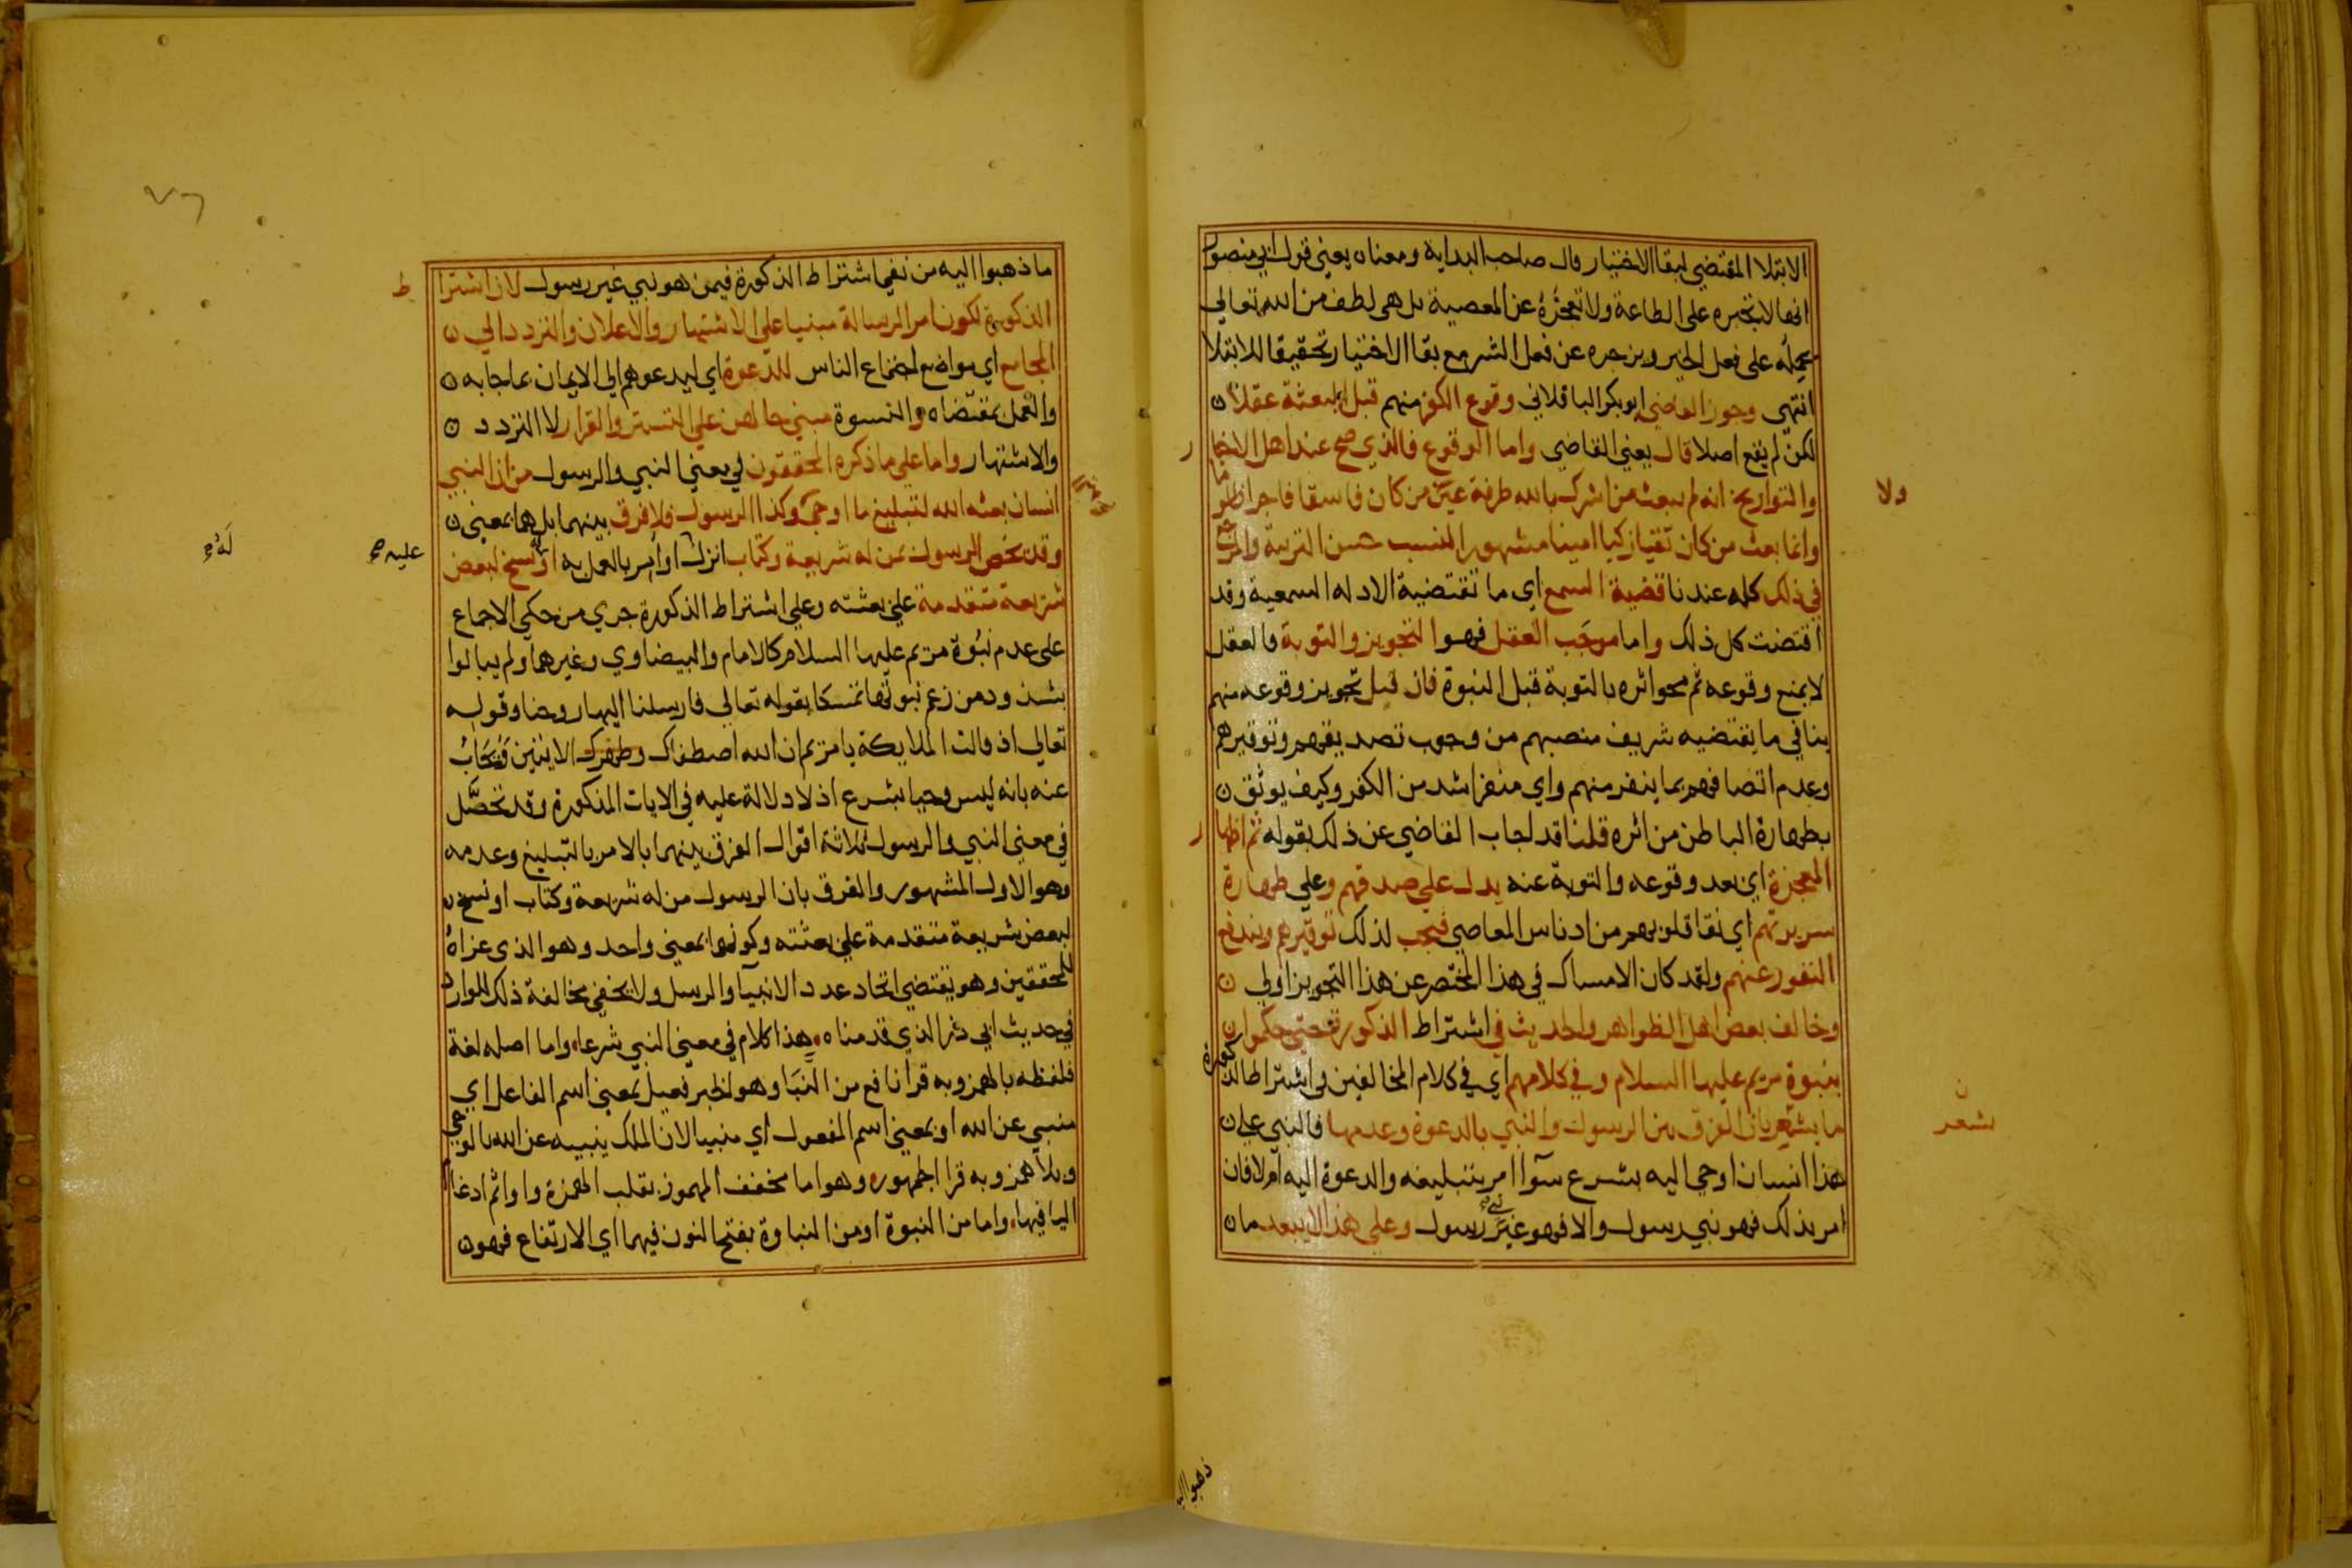 الابتلا المقتضي لبقا الاختيار قال صاحب البداية ومعناه يعني قول ابي منصور
انها لا تجبره على الطاعة ولا تعجزه عن المعصية بل هي لطف من الله تعالى
يحمله على فعل الخير ويزجره عن فعل الشر مع بقا الاختيار تحقيقا للابتلا
انتهى وجوز القاضي ابو بكر الباقلاني وقوع الكفر منهم قبل البعثة عقلا ن
لكن لم يقع اصلا قال يعني القاضي واما الوقوع فالذي صح عند اهل الاخبار
والتواريخ انه لم يبعث من اشرك بالله طرفة عين من كان فاسقا فاجرا ظلوما
ولا
وانما بعث من كان تقيا زكيا امينا مشهور النسب حسن التربية والمرجع
في ذلك كله عندنا قضية السمع اي ما تقتضية الادله السمعية وقد
اقتضت كل ذلك واما موجب العقل فهو التجويز والتوبة فالعقل
لا يمنع وقوعه ثم محو اثره بالتوبة قبل النبوة فان قيل تجويز وقوعه منهم
ينافي ما يقتضيه شريف منصبهم من وجوب تصديقهم وتوقيرهم
وعدم اتصافهم بما ينفر منهم واي منفر اشد من الكفر وكيف يوثق ن
بطهارة الباطن من اثره قلنا قد اجاب القاضي عن ذلك بقوله ثم اظهار
المعجزة اي بعد وقوعه والتوبة عنه يدل على صدقهم وعلى طهارة
سريرتهم اي نقا قلوبهم من ادناس المعاصي فيجب لذلك توقيرهم ويندفع
النفور عنهم ولقد كان الامساك في هذا المختصر عن هذا التجويز اولى ن
وخالف بعض اهل الظواهر والحديث في اشتراط الذكورة حتى حكموا ن
بنبوة مريم عليها السلام وفي كلامهم اي في كلام المخالفين في اشتراط الذكورة
ما يشعر بان الفرق بين الرسول والنبي بالدعوة وعدمها فالنبي على ن
يشعر
هذا انسان اوحي اليه بشرع سوآ امر بتبليغه والدعوة اليه ام لا فان
امر بذلك فهو نبي رسول والا فهو نبي غير رسول وعلى هذا لا يبعد ما ن
ذهبوا اليه
ما ذهبوا اليه من نفي اشتراط الذكورة فيمن هو نبي غير رسول لان اشتراط
الذكورة لكون امر الرسالة مبنيا على الاشتهار والاعلان والتردد الى ن
المجامع اي مواضع اجتماع الناس للدعوة اي ليدعوهم الى الايمان بما جا به ن
والعمل بمقتضاه والنسوة مبني حالهن على التستر والقرار لا التردد ن
والاشتهار واما على ما ذكره المحققون في معنى النبي والرسول من ان النبي
انسان بعثه الله لتبليغ ما اوحي وكذا الرسول فلا فرق بينهما بل هما بمعنى ن
وقد يخص الرسول بمن له شريعة وكتاب انزل او امر بالعمل به او له نسخ لبعض
عليه صح
له صح
شريعة متقدمة على بعثته وعلى اشتراط الذكورة جرى من حكى الاجماع
على عدم نبوة مريم عليها السلام كالامام والبيضاوي وغيرهما ولم يبالوا
بشذوذ من زعم نبوتها تمسكا بقوله تعالى فارسلنا اليها روحنا وقوله
تعالى اذ قالت الملايكة يا مريم ان الله اصطفاك وطهرك الايتين فيجاب
عنه بانه ليس وحيا بشرع اذ لا دلالة عليه في الايات المذكورة وقد تحصل
في معنى النبي والرسول ثلاثة اقوال الفرق بينهما بالامر بالتبليغ وعدمه
وهو الاول المشهور والفرق بان الرسول من له شريعة وكتاب او نسخ ن
لبعض شريعة متقدمة على بعثته وكونهما بمعنى واحد وهو الذي عزاه
للمحققين وهو يقتضي اتحاد عدد الانبيآ والرسل ولا يخفى مخالفة ذلك للوارد
في حديث ابي ذر الذي قدمناه هذا كلام في معنى النبي شرعا واما اصله لغة
فلفظه بالهمز وبه قرا نافع من النبا وهو الخبر فعيل بمعنى اسم الفاعل اي
منبي عن الله او بمعنى اسم المفعول اي منبيا لان الملك ينبيه عن الله بالوحي
وبلا همز وبه قرا الجمهور وهو اما مخفف المهموز بقلب الهمزة واوا ثم ادغام
اليا فيها واما من النبوة او من النباوة بفتح النون فيهما اي الارتفاع فهو ن